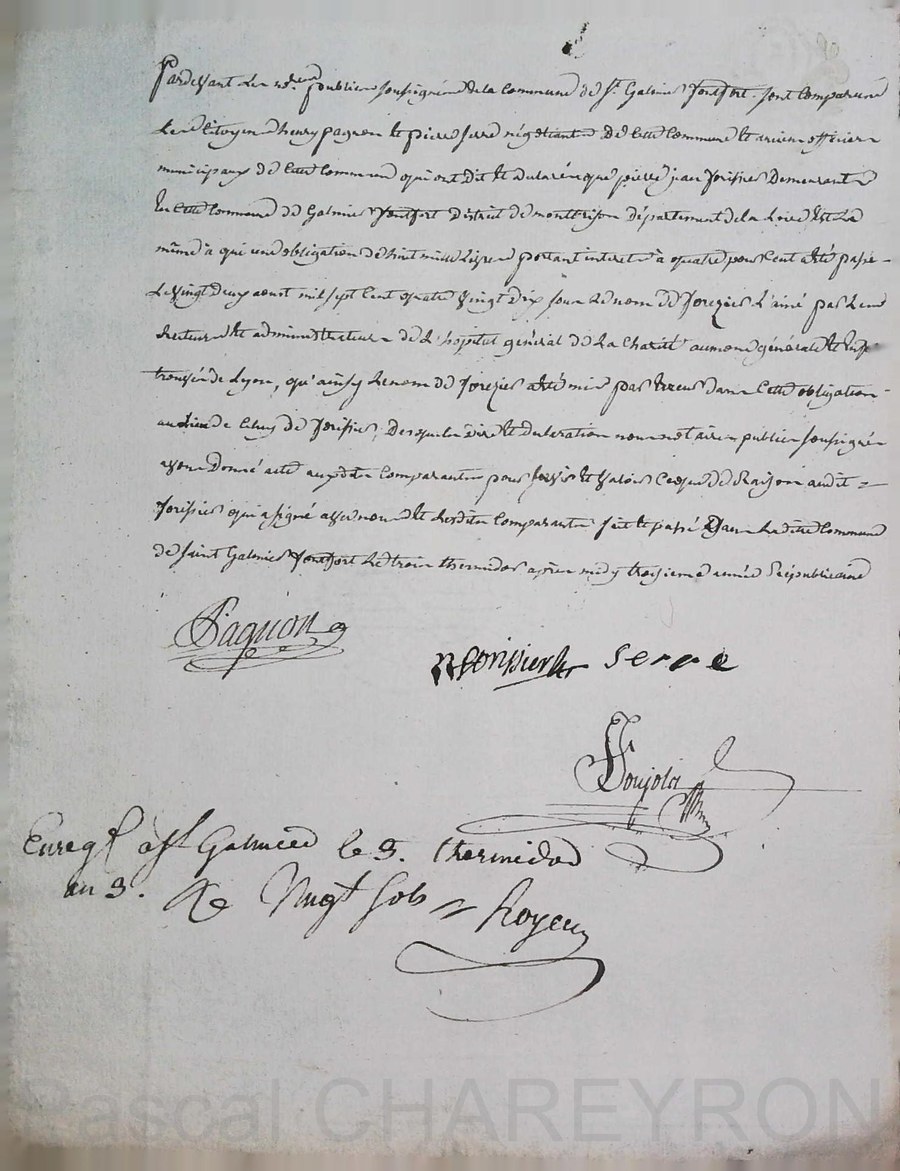 Pardevant les nres publics soussignés de la Commune de St Galmier fontfort. sont Comparus
Les Citoyens henry pagnon et pierre serre négotiants De Cette Commune et anciens officiers
municipaux de Cette Commune qui ont dit et déclaré que pierre jean forissier Demeurant
En Cette Commune de Galmier fontfort District de montbrison département de la Loire Est Le
même à qui une obligation de huit mille Livres portant interet à quatre pour Cent a été passée
Le vingt deux aoust mil sept Cent quatre vingt dix sous Le nom de forezier L'ainé par Les
Recteurs et administrateurs de L'hopital général de La Charité aumone générale et
de Lyon, qu'ainsy Le nom de forezier a été mis par Erreur dans Cette obligation
au Lieu de Celuy de forissier, Desquels Dire et declaration nous notaires publics soussignés
avons Donné acte auxdits Comparants pour servir et valoir Ce que de Raison audit =
forissier qui a signé avec nous et Lesdits Comparants fait et passé Dans La ditte Commune
de Saint Galmier fontfort Le trois thermidor après midy troisieme année Républicaine
Pagnon
forissier serre
Poujola
Enregt à st Galmier le 3. thermidor
an 3. Re Vingt sols = Royeu
Pascal CHAREYRON